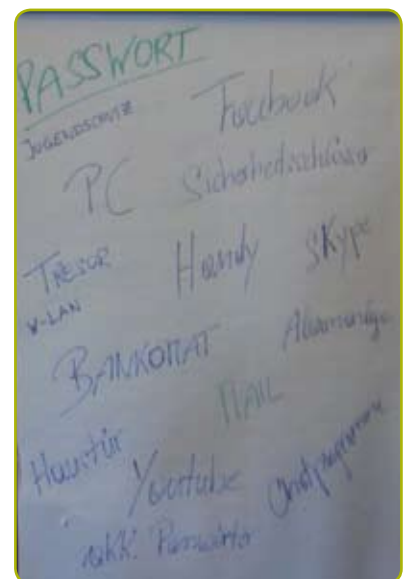 PASSWORT
JUGENDSCHUTZ
Facebook
PC
Sicherheitsschlösser
TRESOR
Handy
Skype
W-LAN
BANKOMAT
Alarmanlage
MAIL
Haustür
Youtube
Chatprogramme